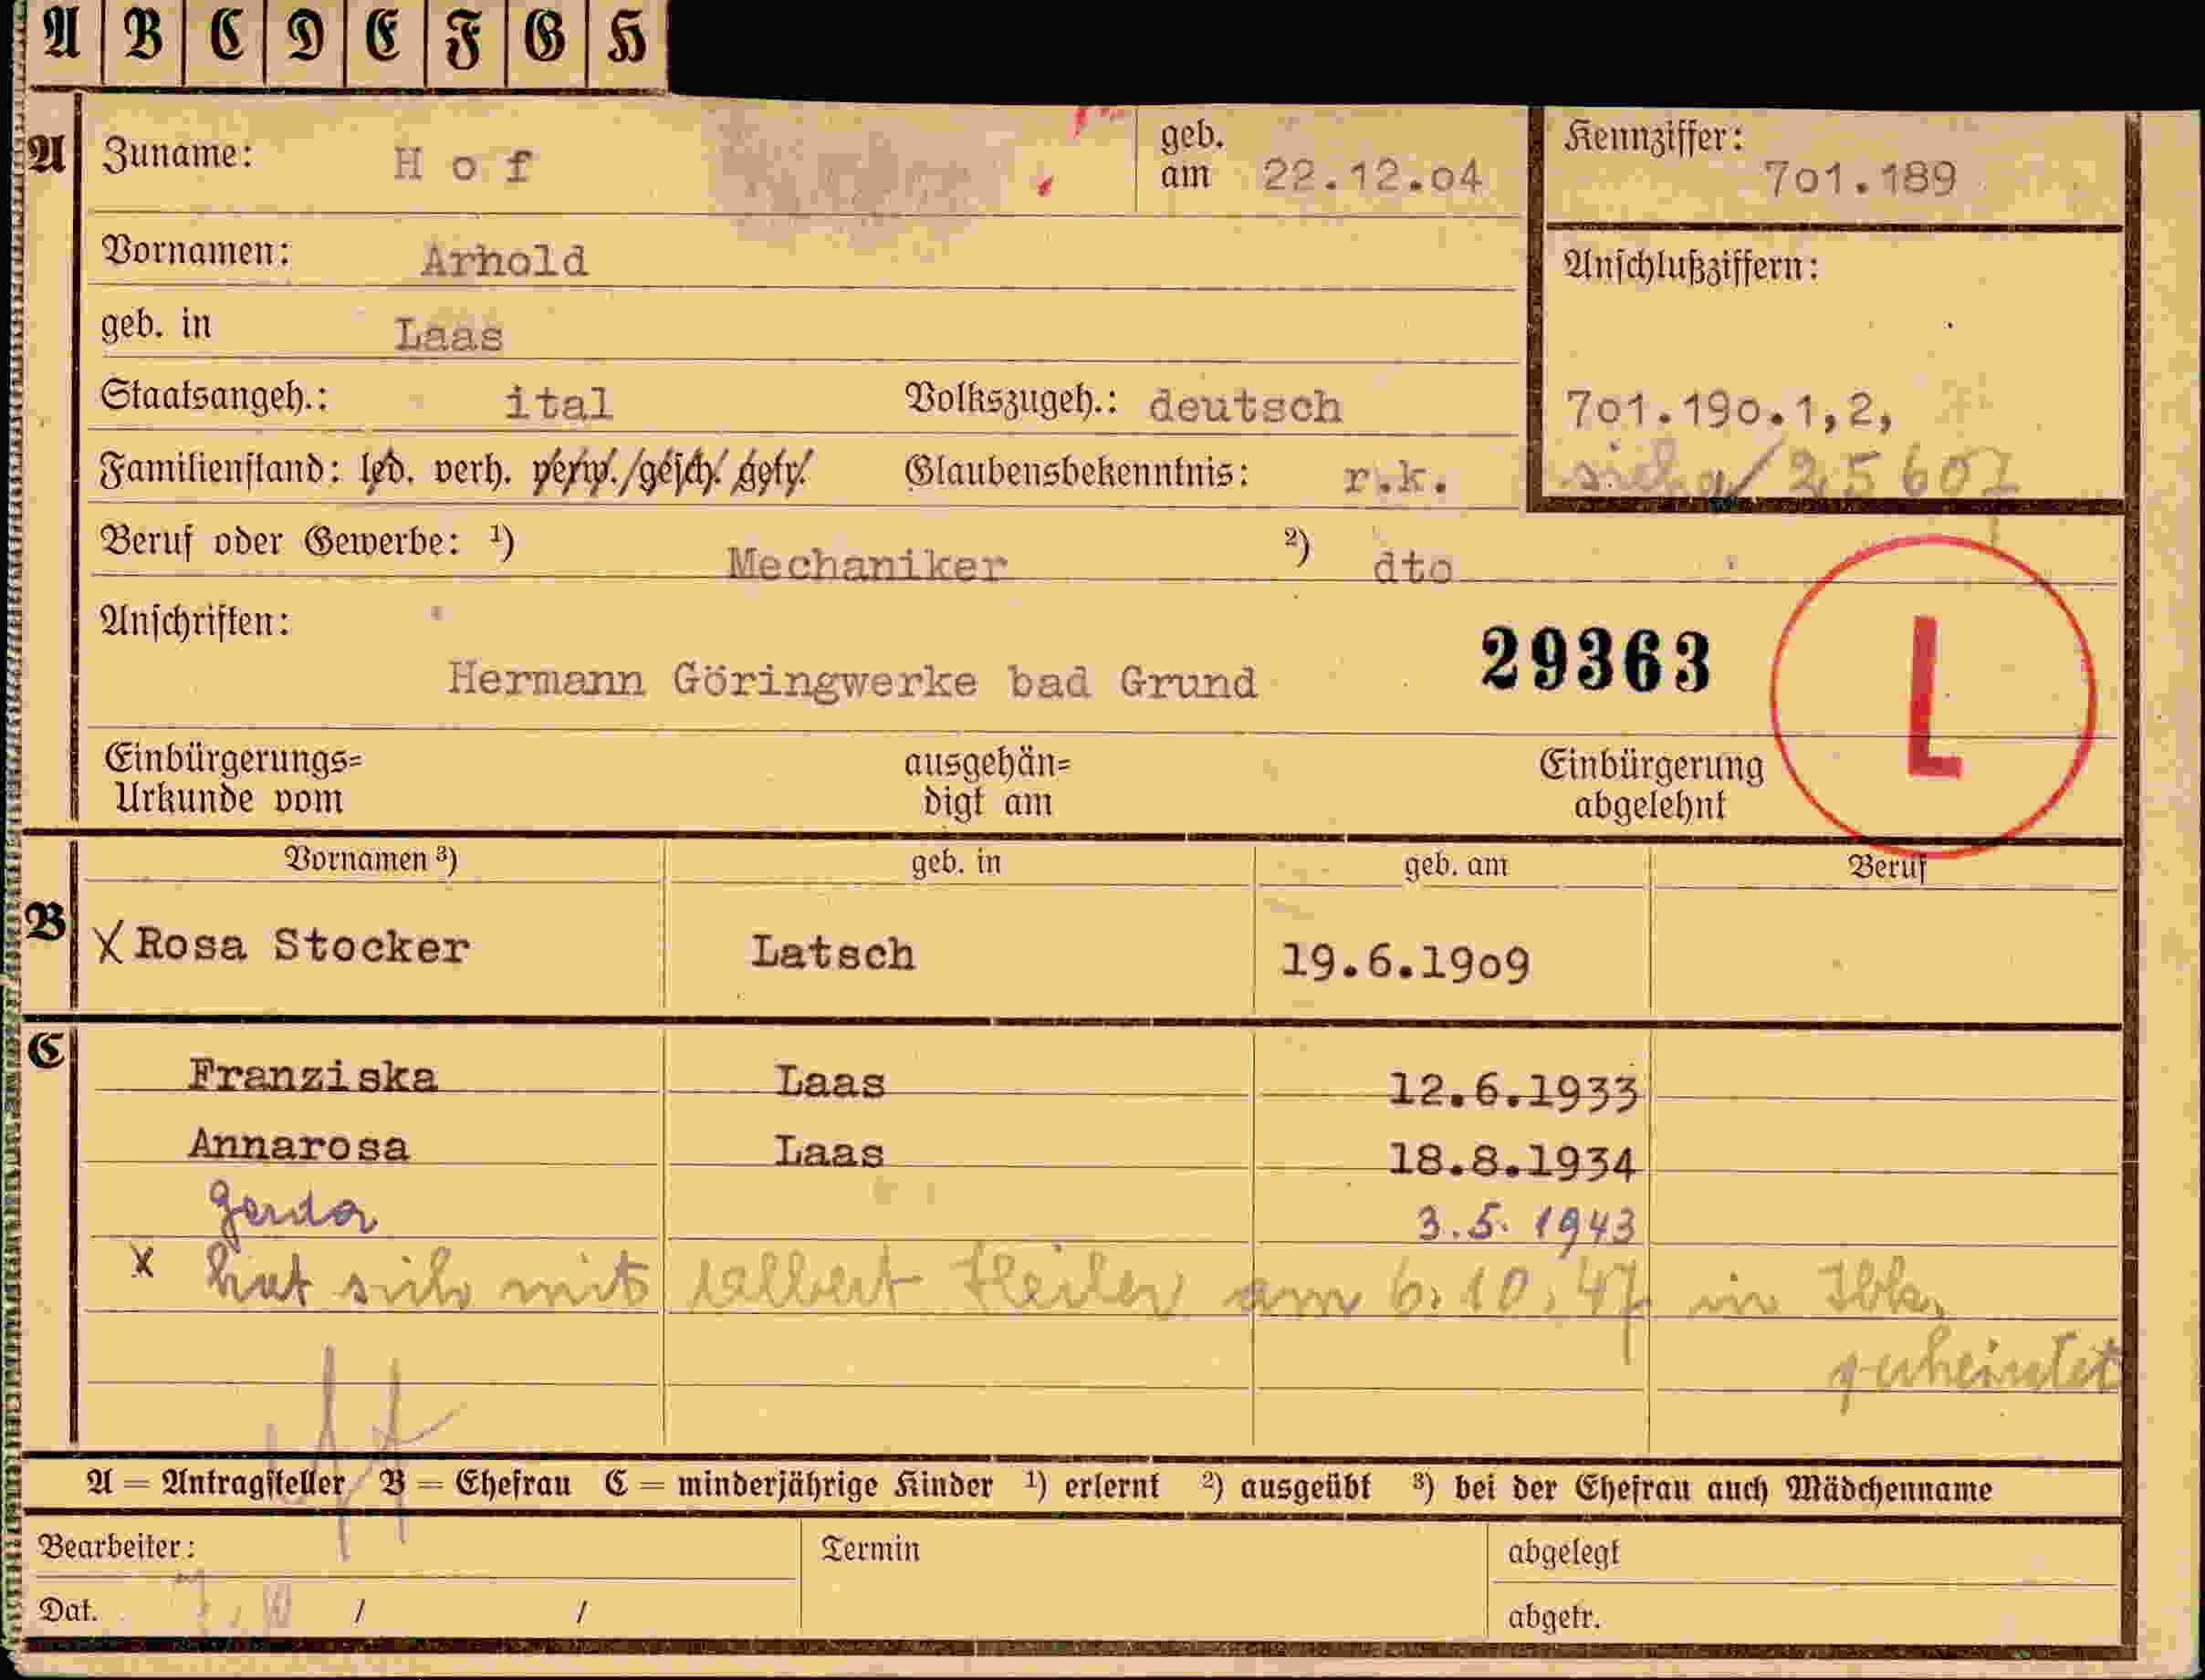 A B C D E F G H
A Zuname: Hof geb. am 22.12.04 Kennziffer: 701.189
Vornamen: Arhold Anschlußziffern:
geb. in Laas
Staatsangeh.: ital Volkszugeh.: deutsch 701.190.1,2,
Familienstand: led. verh. verw. gesch. getr. Glaubensbekenntnis: r.k. 25607
Beruf oder Gewerbe: ¹) Mechaniker ²) dto
Anschriften:
Hermann Göringwerke bad Grund 29363 L
Einbürgerungs= ausgehän= Einbürgerung
Urkunde vom digt am abgelehnt
Vornamen ³) geb. in geb. am Beruf
B X Rosa Stocker Latsch 19.6.1909
C Franziska Laas 12.6.1933
Annarosa Laas 18.8.1934
Gerda 3.5.1943
x hat sich mit Albert am 6.10.47 in Ibk.
geheiratet
A = Antragsteller B = Ehefrau C = minderjährige Kinder ¹) erlernt ²) ausgeübt ³) bei der Ehefrau auch Mädchenname
Bearbeiter: Termin abgelegt
Dat. / / abgetr.